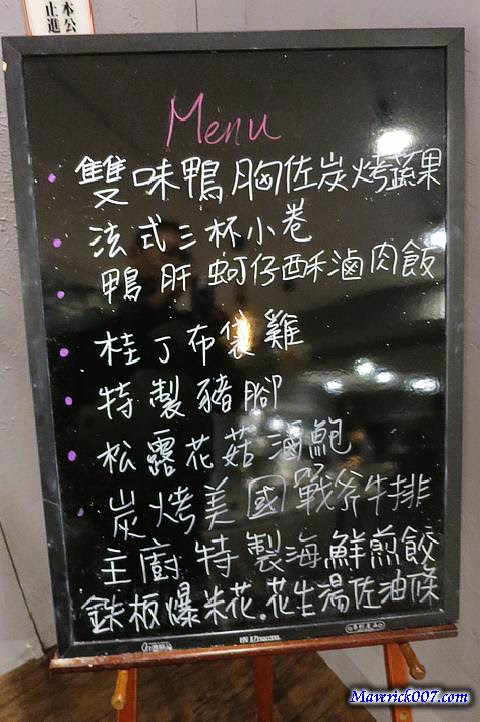 本公
止進
Menu
雙味鴨胸佐炭烤蔬果
法式三杯小卷
鴨肝蚵仔酥滷肉飯
桂丁布袋雞
特製豬腳
松露花菇滷鮑
炭烤美國戰斧牛排
主廚特製海鮮煎餃
鉄板爆米花.花生湯佐油條
Mavrick007.com